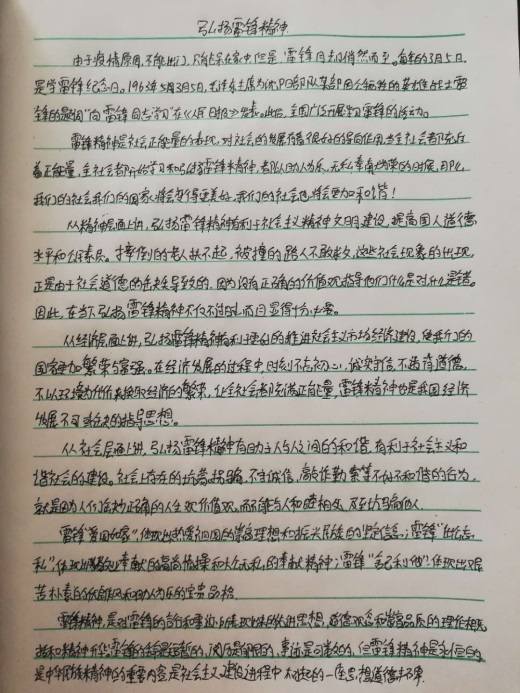 弘扬雷锋精神
由于疫情原因,不能出门,只能呆在家中,但是,雷锋日却悄然而至。每年的3月5日,
是学雷锋纪念日。1963年3月5日,毛泽东主席为沈阳部队某部因公牺牲的英雄战士雷
锋的题词"向雷锋同志学习"在《人民日报》发表。此后,全国广泛开展学习雷锋的活动。
雷锋精神是社会正能量的表现,对社会的发展有着很好的导向作用,当全社会都充斥
着正能量,全社会都开始学习和弘扬雷锋精神,都以助人为乐、无私奉献为荣的时候,那么,
我们的社会我们的国家将会变得更美好,我们的社会也将会更加和谐!
从精神层面上讲,弘扬雷锋精神有利于社会主义精神文明建设,提高国人道德
水平和公民素质。撞倒的老人扶不起,被撞的路人不敢救,这些社会现象的出现,
正是由于社会道德的缺失导致的,因为没有正确的价值观指导他们什么是对什么是错。
因此,在当下弘扬雷锋精神不仅不过时,而且显得十分必要。
从经济层面上讲,弘扬雷锋精神有利于更好的推进社会主义市场经济建设,使我们的
国家更加繁荣与富强。在经济发展的过程中,时刻不忘初心,诚实守信,不违背道德,
不以环境为代价来换取经济的繁荣,让全社会都充满正能量,雷锋精神也是我国经济
发展不可或缺的指导思想。
从社会层面上讲,弘扬雷锋精神有助于人与人之间的和谐,有利于社会主义和
谐社会的建设。社会上存在的坑蒙拐骗,不守诚信,敲诈勒索等不和不和谐的行为,
就是因为人们没有正确的人生观价值观,而不能与人和睦相处,反而坑骗他人。
雷锋"爱国如家",体现出热爱祖国的崇高理想和振兴民族的坚定信念;雷锋"大公无
私",体现出的奉献的高尚情操和大公无私的奉献精神;雷锋"舍己利他",体现出艰
苦朴素的优良作风和助人为乐的宝贵品格。
雷锋精神,是对雷锋的言行和事迹所表现出来的先进思想,道德观念和崇高品质的理论概
括和精神升华。雷锋的话是短暂的,阅历是有限的,事迹是可数的,但雷锋精神是永恒的
是中华民族精神的重要内容是社会主义建设进程中的一座思想道德丰碑。